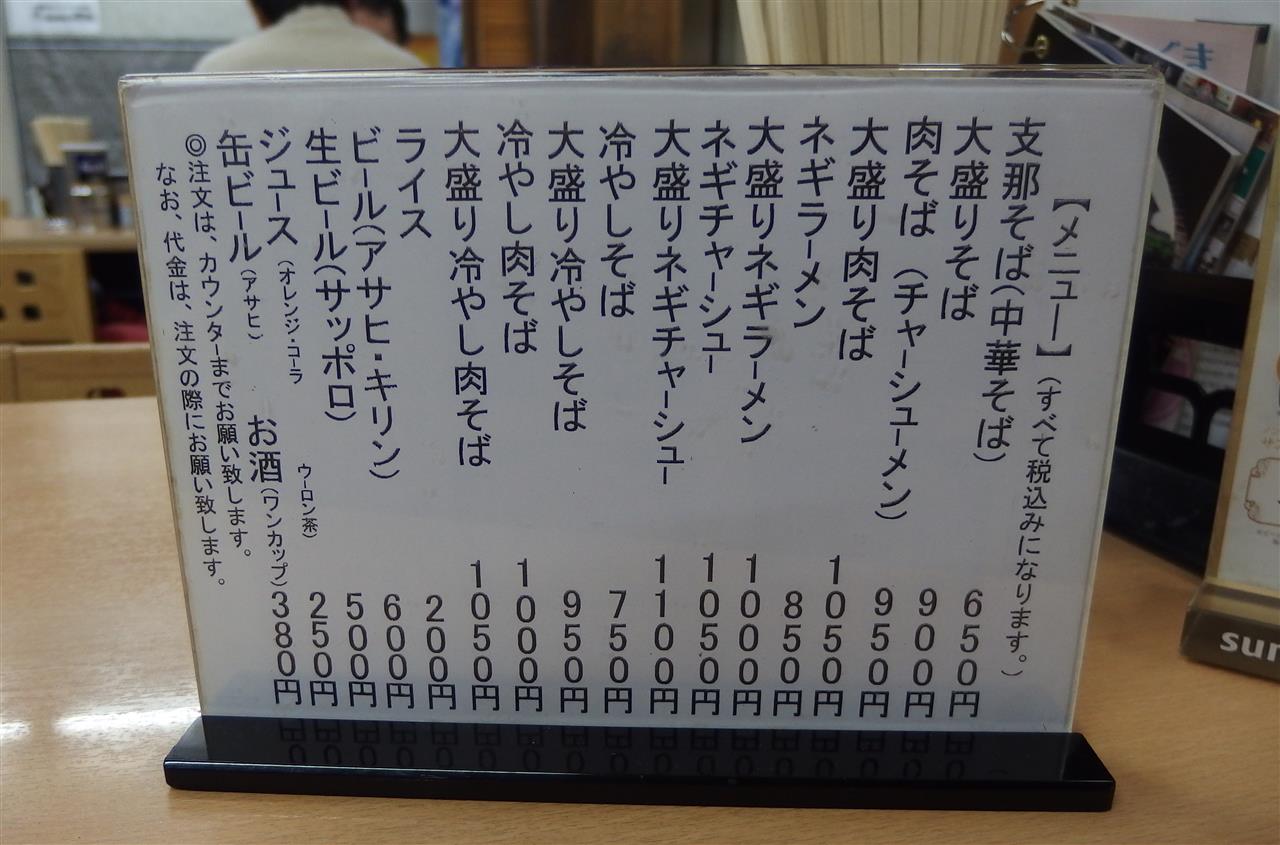 【メニュー】(すべて税込みになります。)
支那そば(中華そば) 650円
大盛りそば 900円
肉そば (チャーシューメン) 950円
大盛り肉そば 1050円
ネギラーメン 850円
大盛りネギラーメン 1000円
ネギチャーシュー 1050円
大盛りネギチャーシュー 1100円
冷やしそば 750円
大盛り冷やしそば 950円
冷やし肉そば 1000円
大盛り冷やし肉そば 1050円
ライス 200円
ビール(アサヒ・キリン) 600円
生ビール(サッポロ) 500円
ジュース (オレンジ・コーラ ウーロン茶) 250円
缶ビール(アサヒ) お酒(ワンカップ) 380円
◎注文は、カウンターまでお願い致します。
なお、代金は、注文の際にお願い致します。